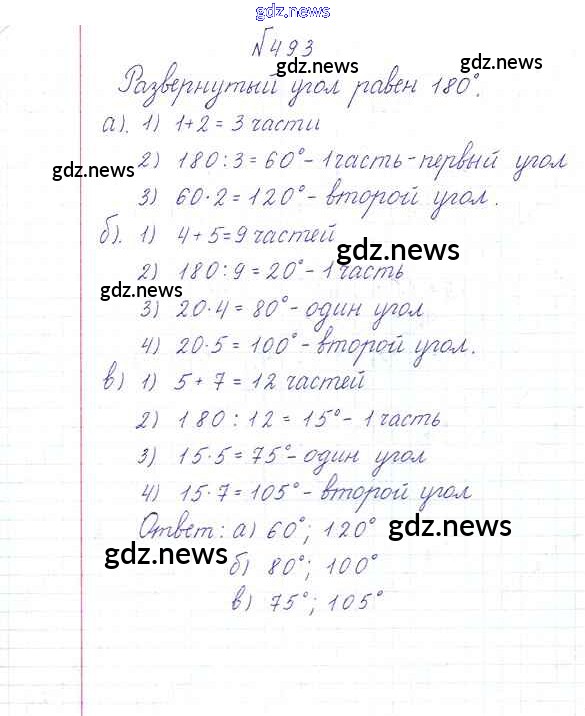 gdz.news
№493
gdz.news
gdz.news
Развернутый угол равен 180°.
а). 1) 1+2 = 3 части
2) 180:3 = 60° - 1 часть - первый угол
gdz.news
3) 60·2 = 120° - второй угол.
б). 1) 4+5=9 частей
gdz.news
2) 180:9 = 20° - 1 часть
gdz.news
3) 20·4 = 80° - один угол
4) 20·5 = 100° - второй угол.
в) 1) 5+7 = 12 частей
2) 180:12 = 15° - 1 часть
3) 15·5 = 75° - один угол
4) 15·7 = 105° - второй угол
Ответ: а) 60°; 120°
gdz.news
gdz.news
б) 80°; 100°
в) 75°; 105°